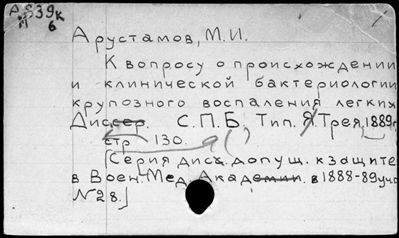 А 539к
6
Арустамов, М.И.
К вопросу о происхождении
и клинической бактериологии
крупозного воспаления легких
Диссер. С.П.Б, Тип. Я.Трея, 1889г
стр 130.
[Серия дисс. допущ. к защите
в Воен. Мед. Академии. в 1888-89 уч.
№28.]